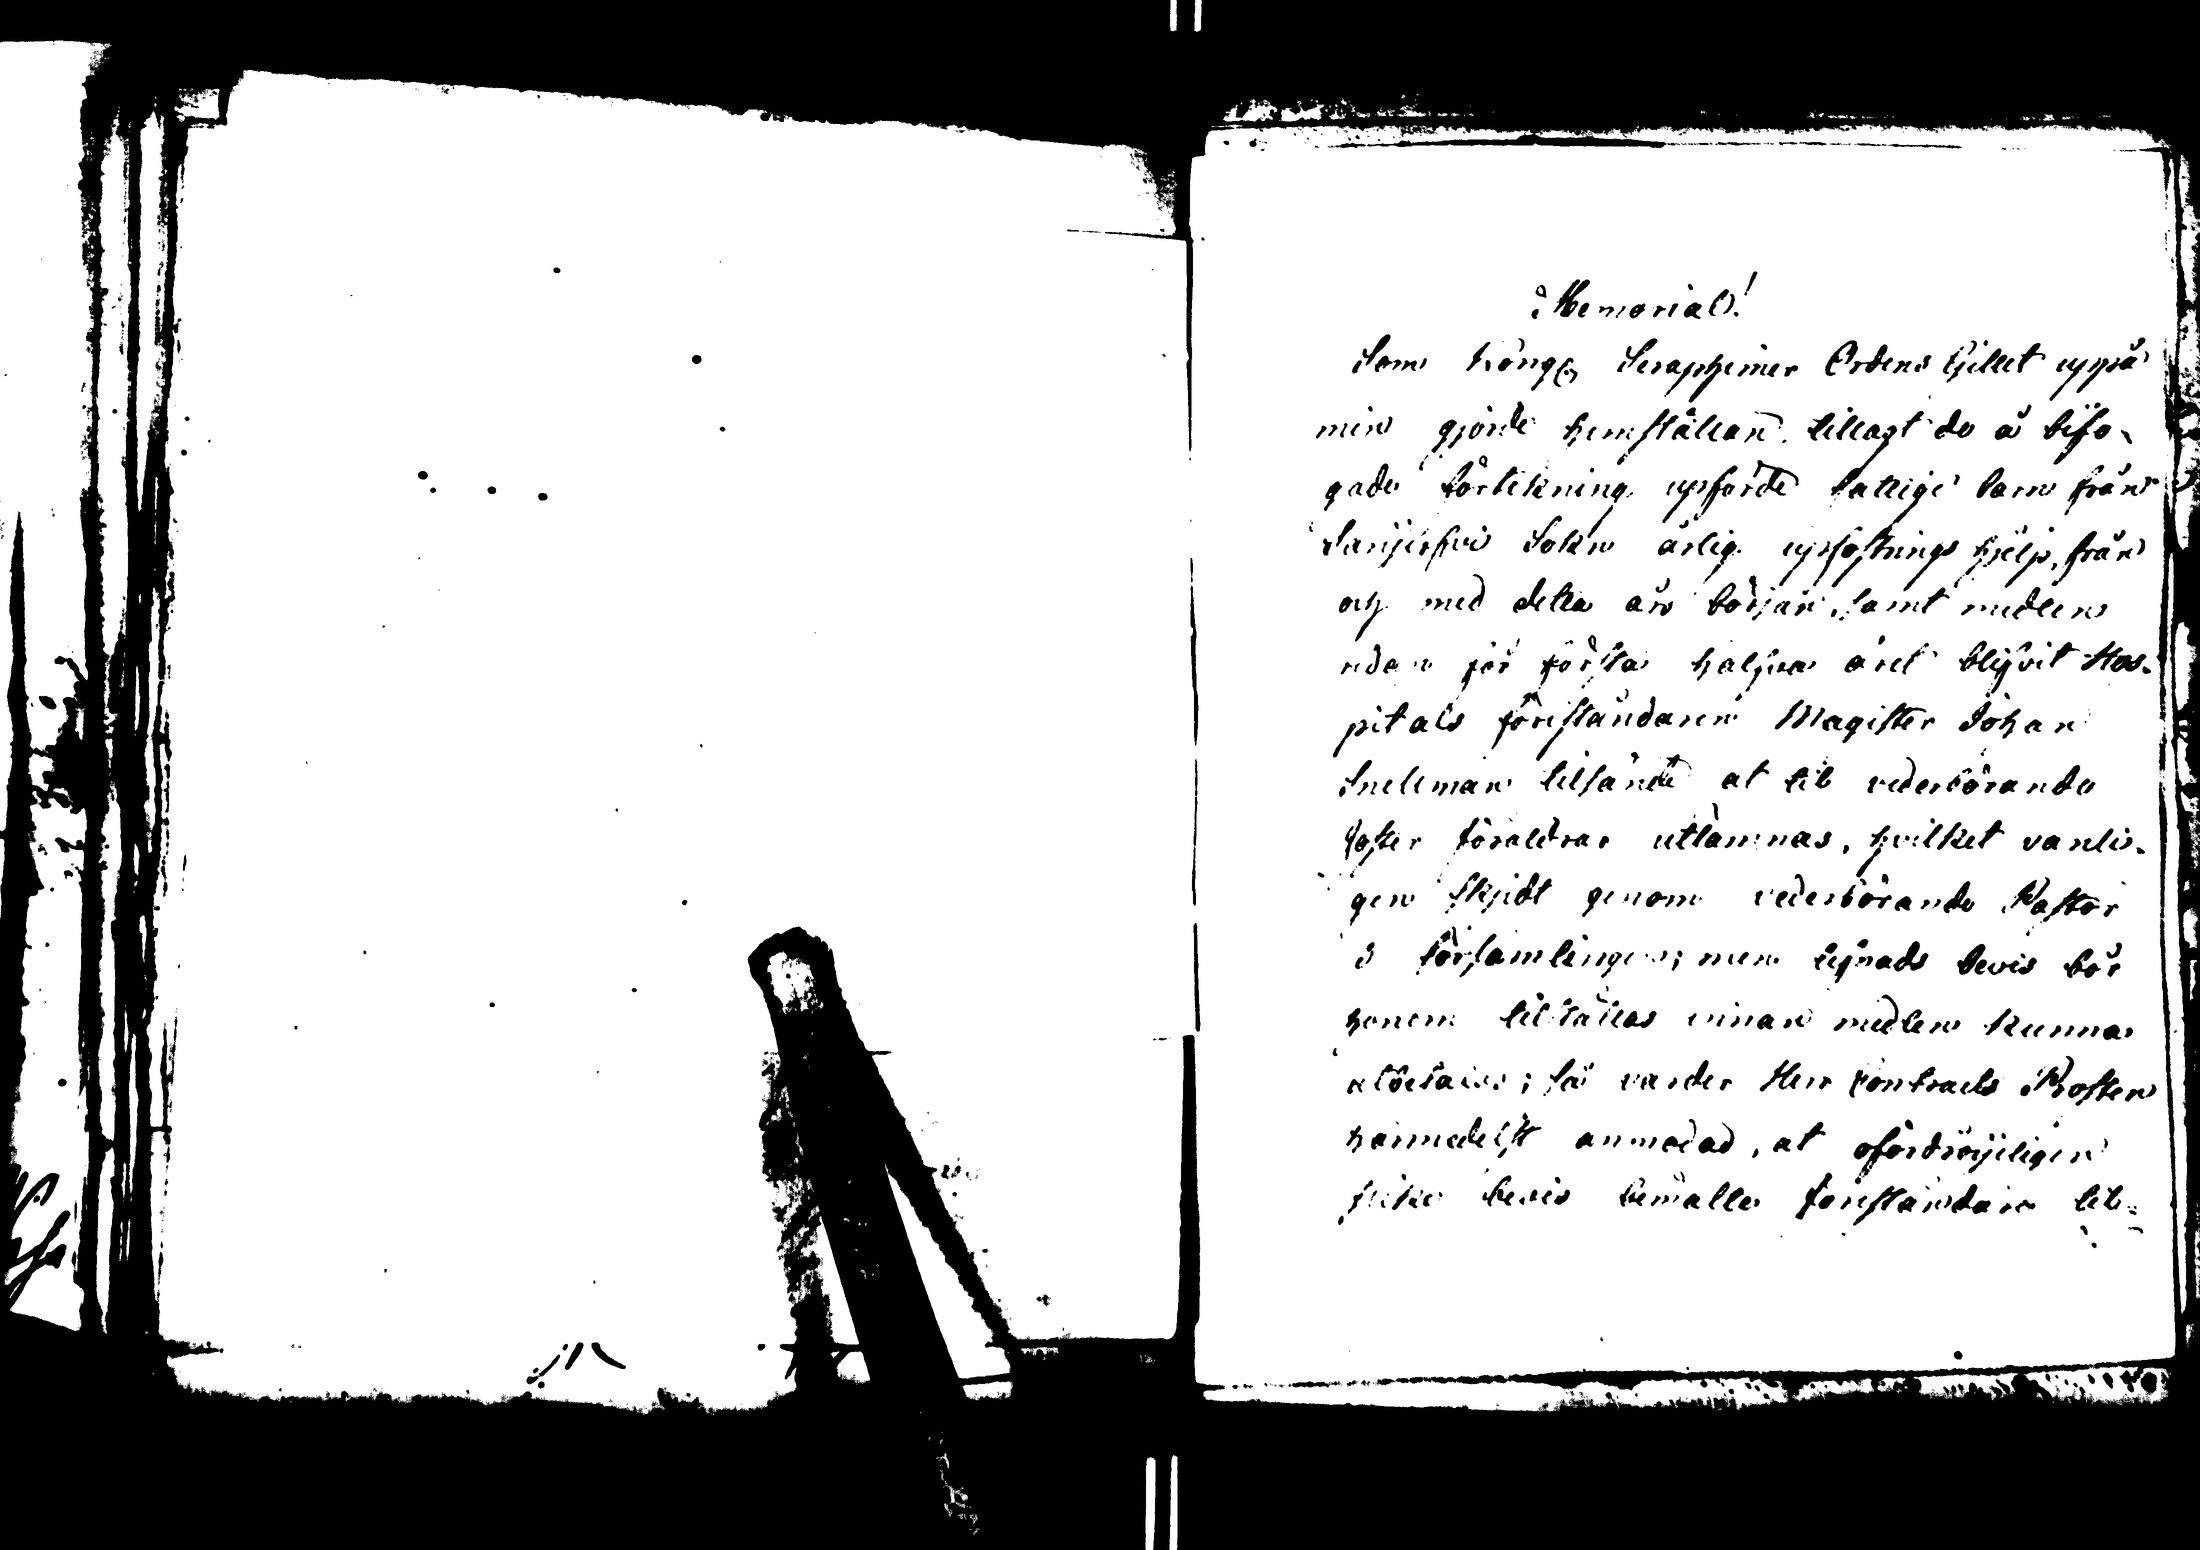 Memorial!
Som Kongl. Seraphimer Ordens Gillet uppå
min gjorde hemställan tillagt de å bifo-
gade förtekning upförde fattige barn från
Sarijerfvi Sokn årlig upfostrings hjelp, från
och med detta års början, samt medlen
redan för första halfva året blifvit Hos-
pitals föreståndaren Magister Johan
Snellman tilsände at til vederbörande
foster föräldrar utlämnas, hvilket vanli-
gen skjedt genom vederbörande Pastor
i församlingen; men lefnads bevis bör
honom tilställas innan medlen kunna
; så varder Herr Contracts Prosten
härmedelst anmodad, at ofördröijeligen
slike bevis bemälte föreståndare til-